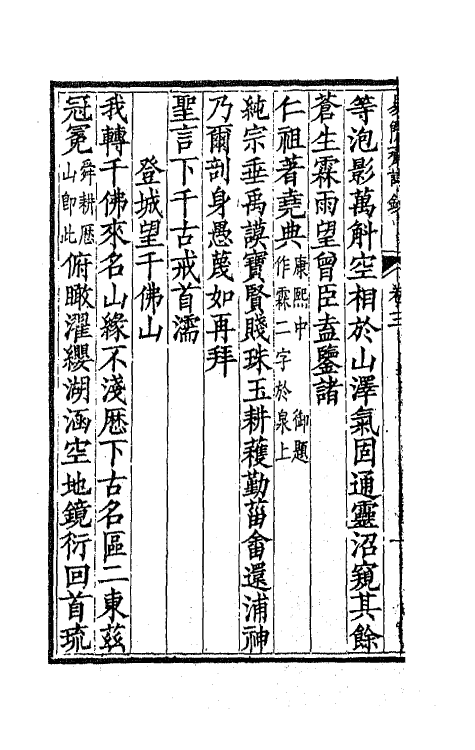 等泡影萬斛空相於山澤氣固通靈沼窺其餘
蒼生霖雨望曾臣盍鑒諸
仁祖著堯典康熙中御題作霖二字於泉上
純宗垂禹謨寶賢賤珠玉耕穫勤菑畬還浦神
乃爾剖身愚蔑如再拜
聖言下千古戒首濡
登城望千佛山
我轉千佛來名山緣不淺歷下古名區二東茲
冠冕舜耕歷山即此俯瞰濯纓湖涵空地鏡衍回首琉